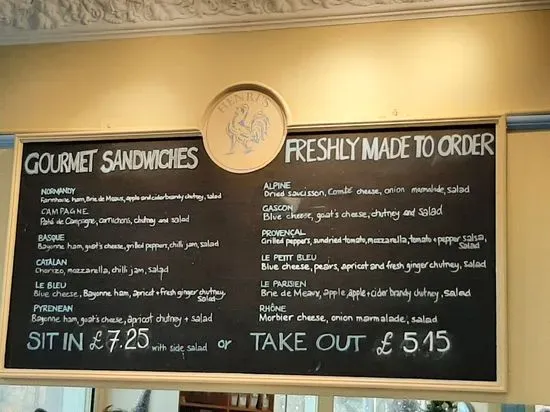 HENRI'S
GOURMET SANDWICHES
FRESHLY MADE TO ORDER
NORMANDY
Farmhouse ham, Brie de Meaux, apple and cider brandy chutney, salad
CAMPAGNE
Paté de Campagne, cornichons, chutney and salad
BASQUE
Bayonne ham, goat's cheese, grilled peppers, chilli jam, salad
CATALAN
Chorizo, mozzarella, chilli jam, salad
LE BLEU
Blue cheese, Bayonne ham, apricot + fresh ginger chutney,
Salad
PYRENEAN
Bayonne ham, goat's cheese, apricot chutney + salad
ALPINE
Dried saucisson, Comté cheese, onion marmalade, salad
GASCON
Blue cheese, goat's cheese, chutney and salad
PROVENÇAL
Grilled peppers, sundried tomato, mozzarella, tomato + pepper salsa,
Salad
LE PETIT BLEU
Blue cheese, pears, apricot and fresh ginger chutney, salad
LE PARISIEN
Brie de Meaux, apple, apple + cider brandy chutney, salad
RHÔNE
Morbier cheese, onion marmalade, salad
SIT IN £7.25 with side salad or TAKE OUT £5.15